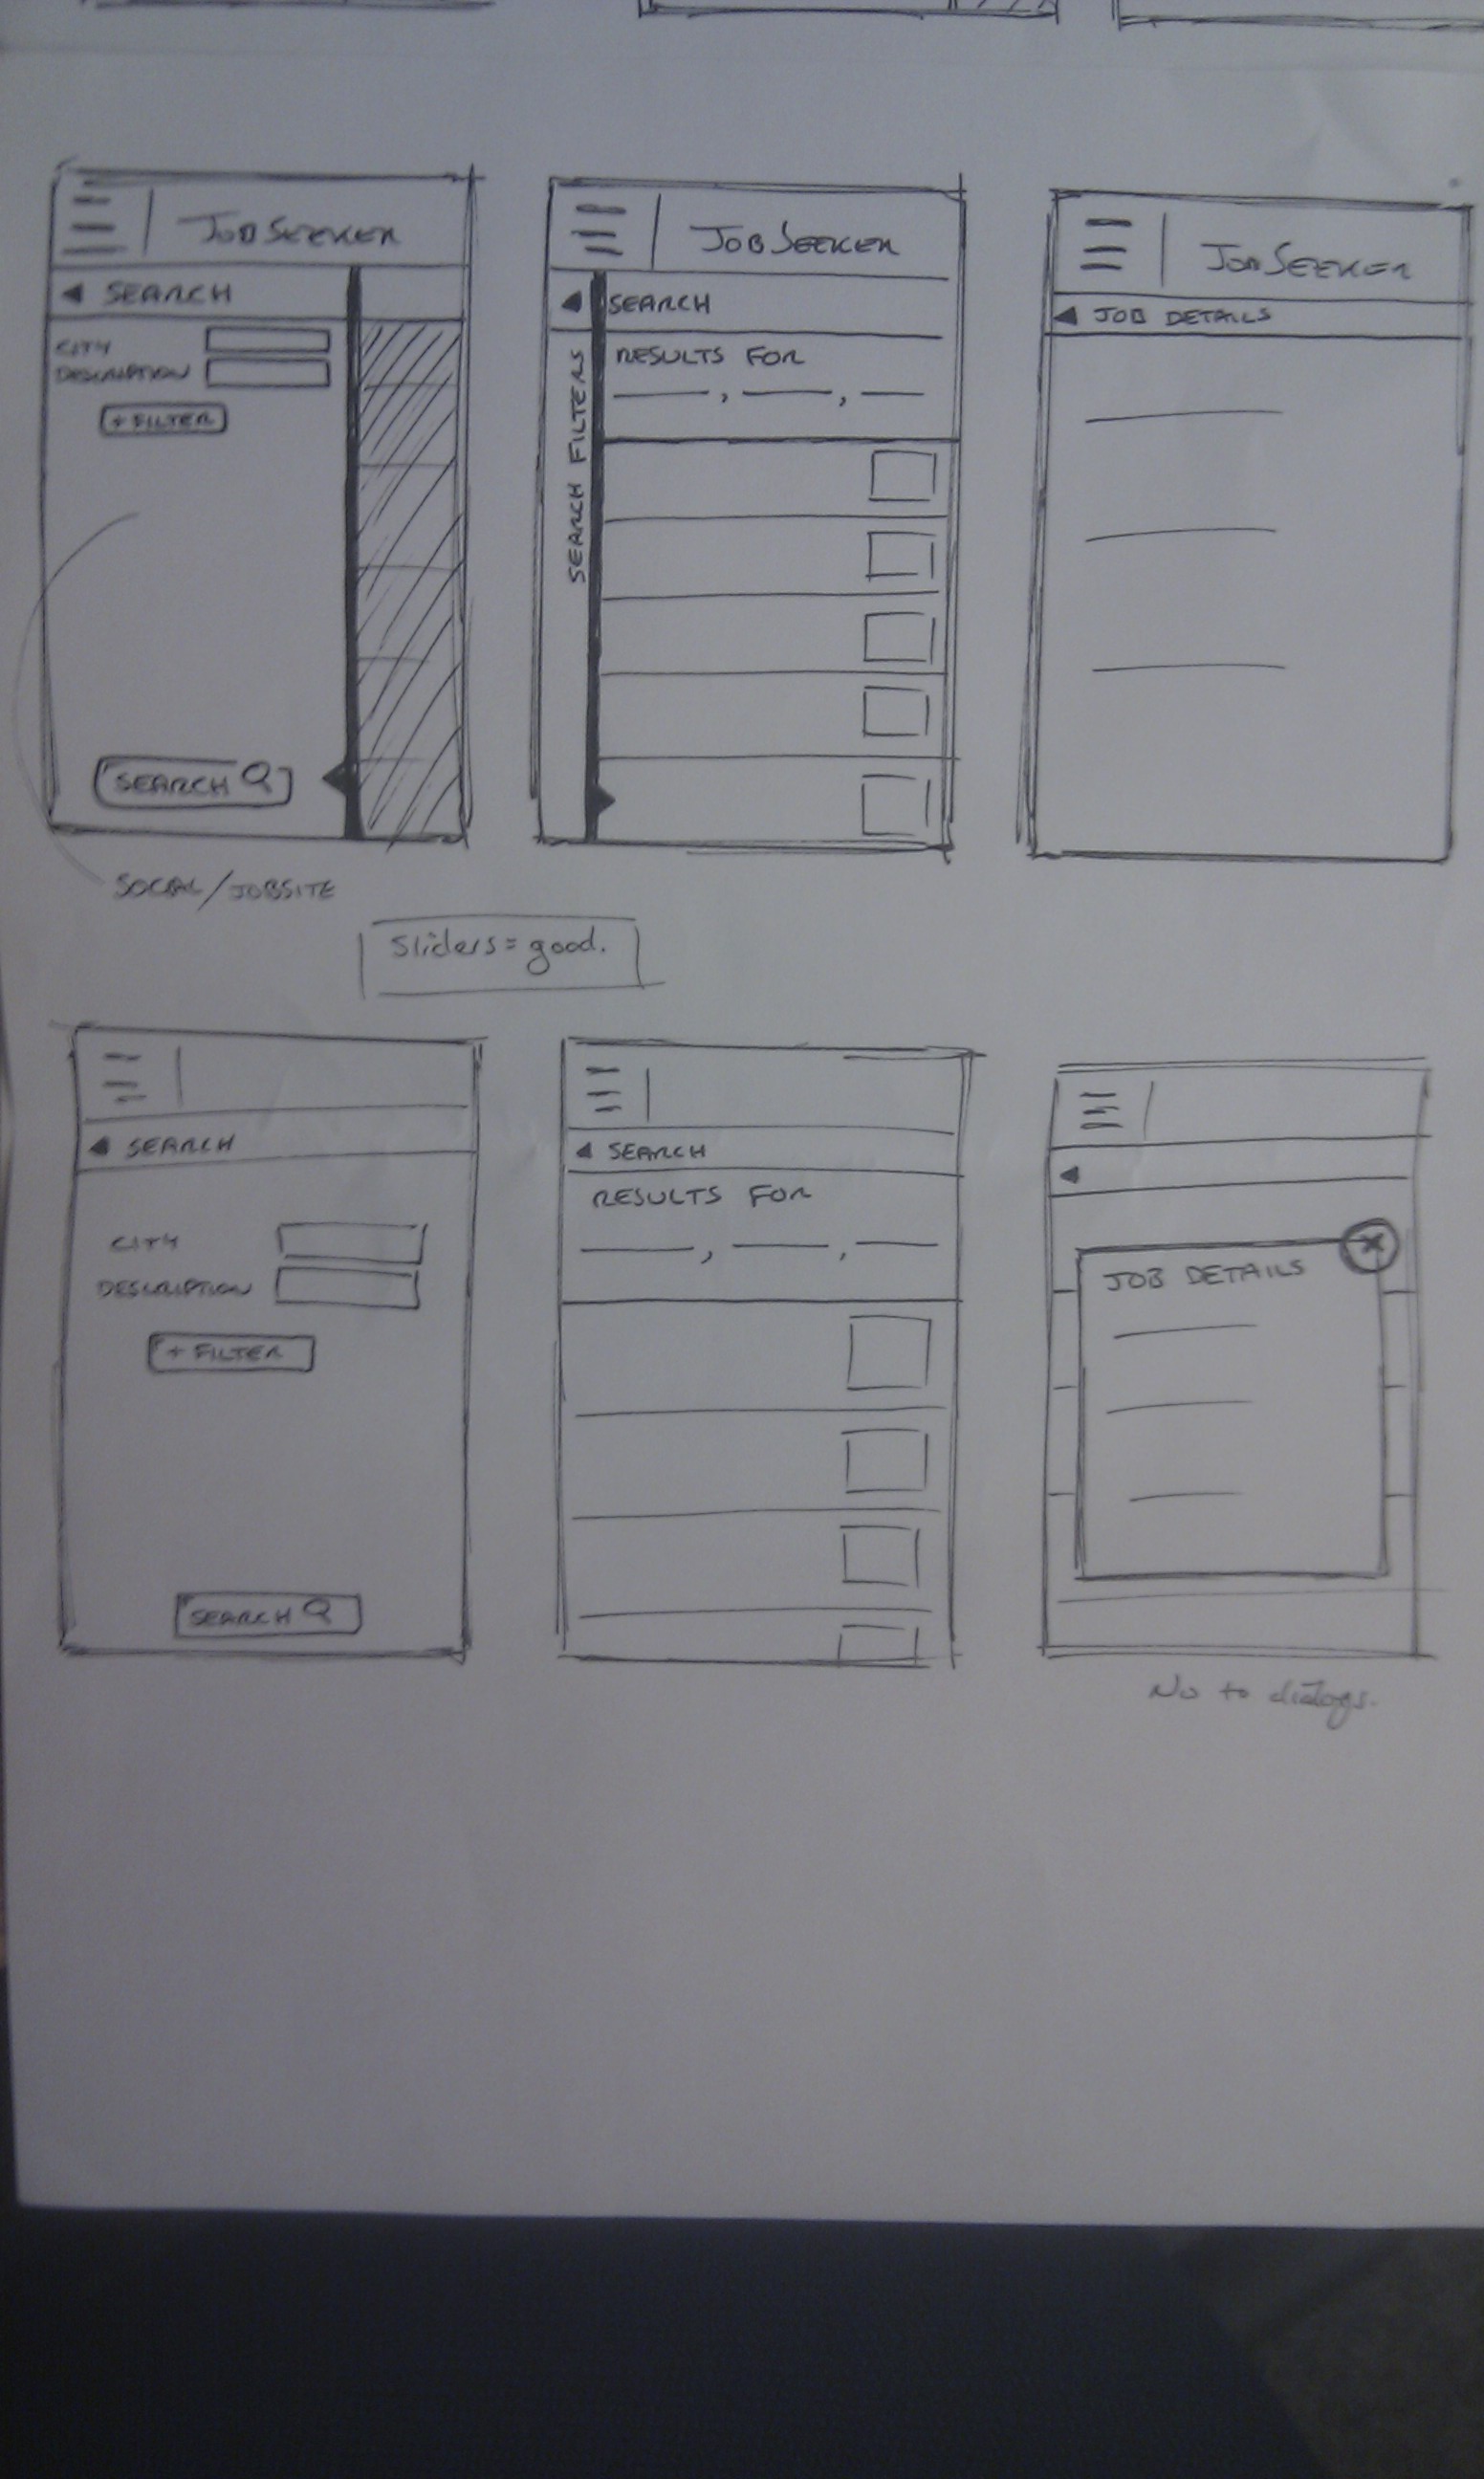 JOBSEEKER
◄ SEARCH
CITY
DESCRIPTION
+ FILTER
SEARCH
SOCIAL/JOBSITE
JOBSEEKER
◄ SEARCH
SEARCH FILTERS
RESULTS FOR
, ,
JOBSEEKER
◄ JOB DETAILS
Sliders = good.
◄ SEARCH
CITY
DESCRIPTION
+ FILTER
SEARCH
◄ SEARCH
RESULTS FOR
, ,
◄
X
JOB DETAILS
No to dialogs.